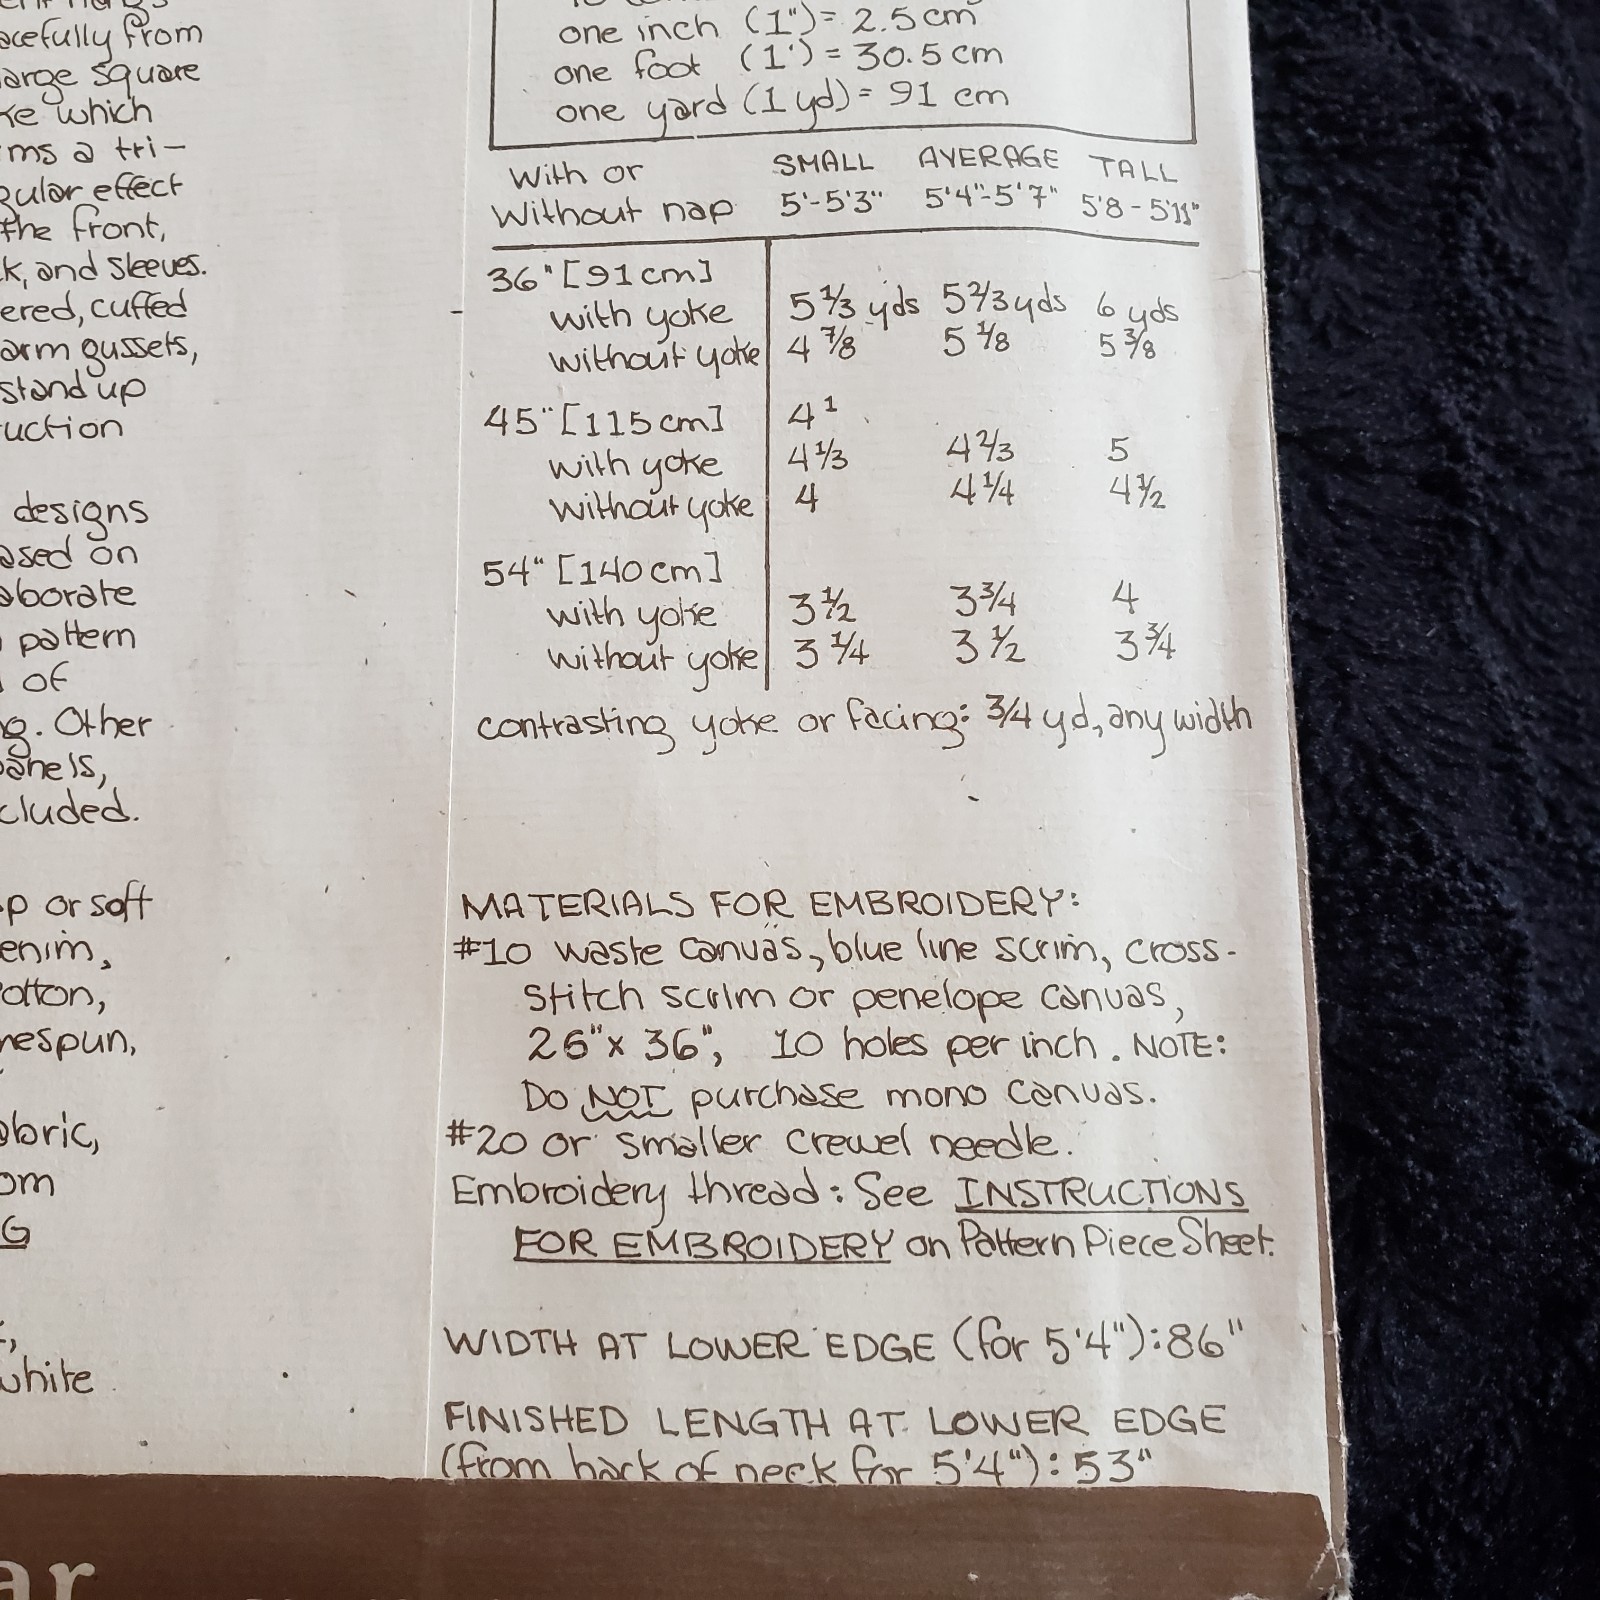 acefully from
arge square
ke which
ms a tri-
gular effect
the front,
k, and sleeves.
ered, cuffed
arm gussets,
stand up
uction
designs
ased on
aborate
pattern
of
g. Other
panels,
cluded.
p or soft
enim,
otton,
mespun,
abric,
om
G
white
ar
one inch (1") = 2.5 cm
one foot (1') = 30.5 cm
one yard (1 yd) = 91 cm
With or SMALL AVERAGE TALL
Without nap 5'-5'3" 5'4"-5'7" 5'8-5'11"
36" [91cm]
with yoke 5 1/3 yds 5 2/3 yds 6 yds
without yoke 4 7/8 5 1/8 5 3/8
45" [115cm] 4 1
with yoke 4 1/3 4 2/3 5
without yoke 4 4 1/4 4 1/2
54" [140cm]
with yoke 3 1/2 3 3/4 4
without yoke 3 1/4 3 1/2 3 3/4
contrasting yoke or facing: 3/4 yd, any width
MATERIALS FOR EMBROIDERY:
#10 waste canvas, blue line scrim, cross-
stitch scrim or penelope canvas,
26" x 36", 10 holes per inch. NOTE:
Do NOT purchase mono canvas.
#20 or smaller crewel needle.
Embroidery thread: See INSTRUCTIONS
FOR EMBROIDERY on Pattern Piece Sheet.
WIDTH AT LOWER EDGE (for 5'4"): 86"
FINISHED LENGTH AT LOWER EDGE
(from back of neck for 5'4"): 53"